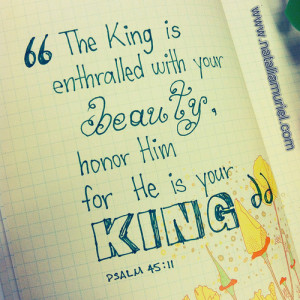 “ The King is
enthralled with your
Beauty,
honor Him
for He is your
KING ”
PSALM 45:11
www.nataliamuriel.com